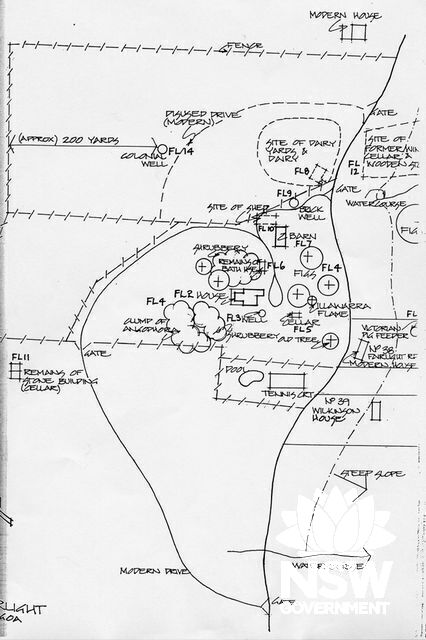 MODERN HOUSE
FENCE
DISUSED DRIVE
(MODERN)
GATE
(APPROX) 200 YARDS
FL14
COLONIAL
WELL
SITE OF DAIRY
YARDS &
DAIRY
FL8
FL
12
SITE OF
FORMER
CELLAR &
WOODEN
FL9
GATE
BRICK
WELL
WATERCOURSE
SITE OF SHED
FL10
BARN
FL7
SHRUBBERY
REMAINS OF
BATH HSE
FL6
FIGS
FL4
FIG
FL4
FL2 HOUSE
ILLAWARRA
FLAME
CLUMP OF
ANGOPHORA
FL3
WELL
CELLAR
FL5
SHRUBBERY
OLD TREE
FL
VICTORIAN
PIG FEEDER
GATE
Nº 38
FAIRLIGHT RD
MODERN HOUSE
FL11
REMAINS OF
STONE BUILDING
(CELLAR)
POOL
TENNIS CRT
Nº 39
WILKINSON
HOUSE
STEEP SLOPE
MODERN DRIVE
WATER
GATE
RLIGHT
GOA
NSW
GOVERNMENT